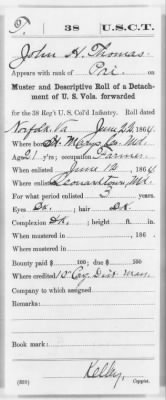 38 U.S.C.T.
John H. Thomas
Appears with rank of Pri on
Muster and Descriptive Roll of a Detach-
ment of U. S. Vols. forwarded
for the 38 Reg't U.S. Col'd Infantry. Roll dated
Norfolk, Va June 26, 1864.
Where born St. Marys Co. Md.
Age 21 y'rs; occupation Farmer
When enlisted June 12, 1864.
Where enlisted Leonardtown, Md.
For what period enlisted 3 years.
Eyes Dk.; hair Dk.
Complexion Dk.; height ft. in.
When mustered in , 186 .
Where mustered in
Bounty paid $ 100; due $ 100
Where credited 1st Cong. Dist.
Company to which assigned
Remarks:
Book mark:
Kelly,
(339) Copyist.